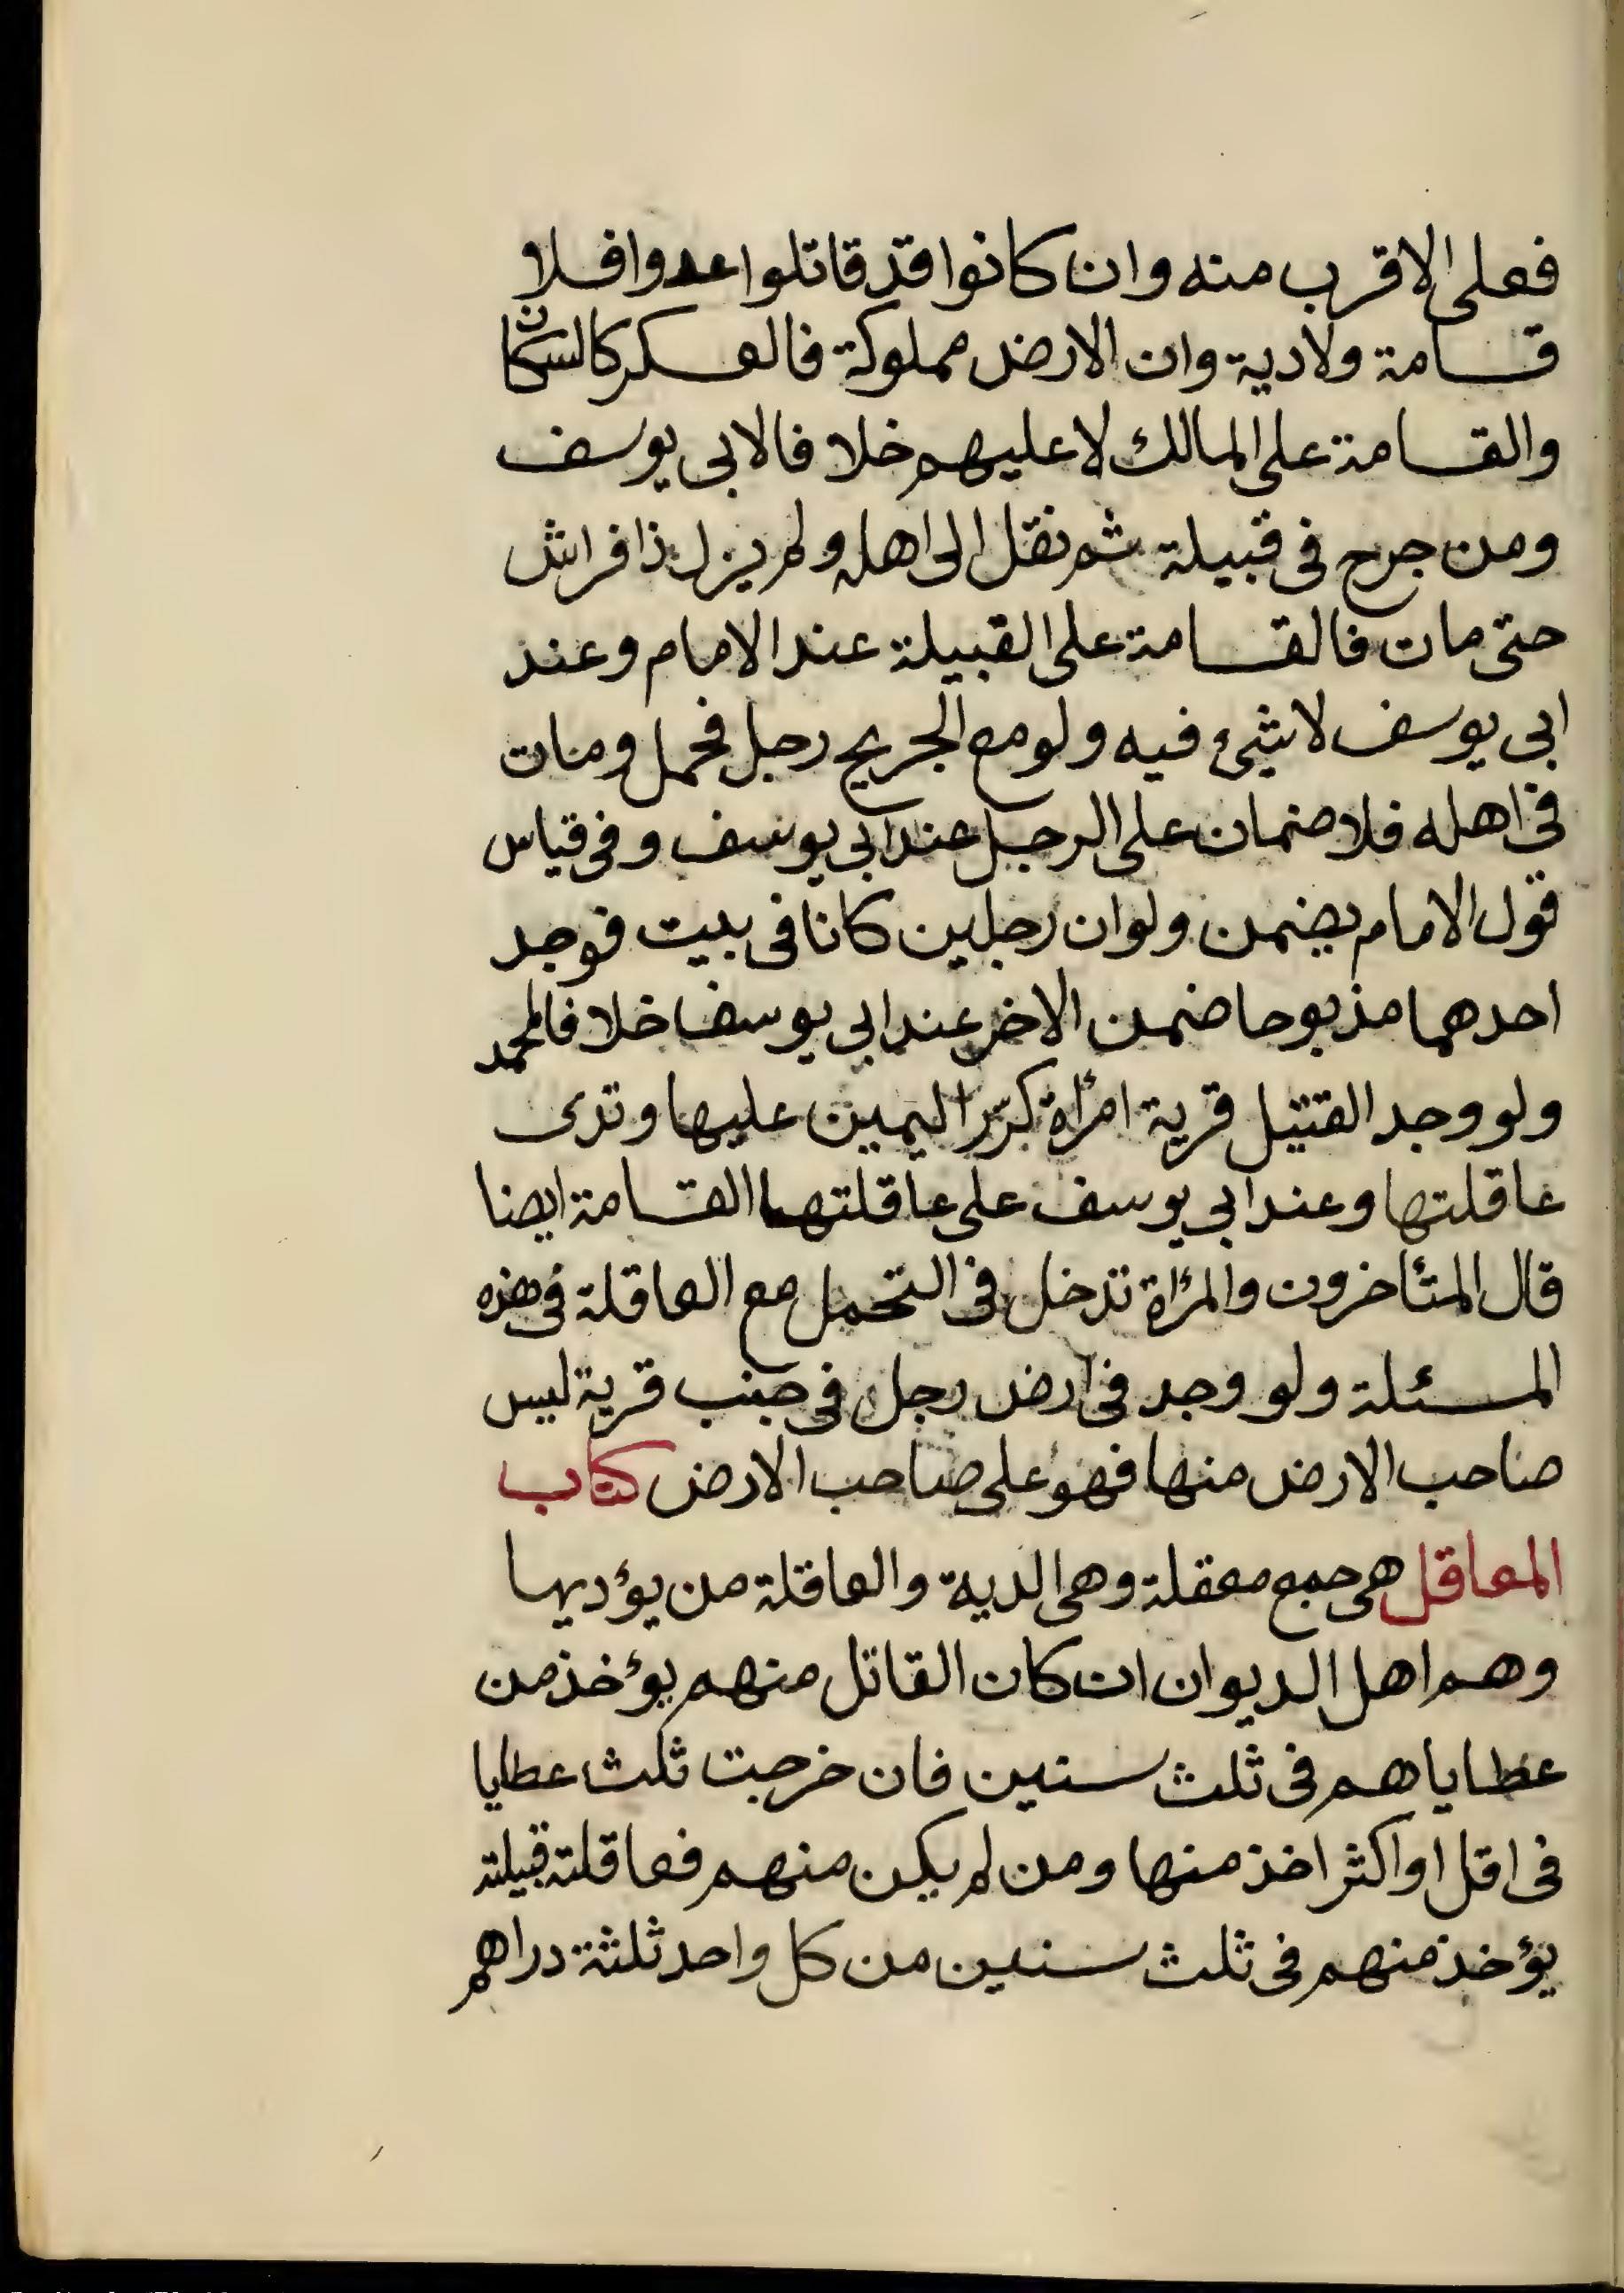 فعلى الاقرب منه وان كانوا قد قاتلوا عدوا فلا
قسامة ولادية وان الارض مملوكة فالعسكر كالسكان
والقسامة على المالك لا عليهم خلافا لابى يوسف
ومن جرح فى قبيلة ثم نقل الى اهله ولم يزل ذا فراش
حتى مات فالقسامة على القبيلة عند الامام وعند
ابى يوسف لا شئ فيه ولو مع الجريح رجل فحمل ومات
فى اهله فلا ضمان على الرجل عند ابى يوسف وفى قياس
قول الامام يضمن ولو ان رجلين كانا فى بيت فوجد
احدهما مذبوحا ضمن الاخر عند ابى يوسف خلافا لمحمد
ولو وجد القتيل قرية امرأة كرّر اليمين عليها وتدى
عاقلتها وعند ابى يوسف على عاقلتها القسامة ايضا
قال المتأخرون والمرأة تدخل فى التحمل مع العاقلة فى هذه
المسئلة ولو وجد فى ارض رجل فى جنب قرية ليس
صاحب الارض منها فهو على صاحب الارض كتاب
المعاقل هى جمع معقلة وهى الدية والعاقلة من يؤديها
وهم اهل الديوان ان كان القاتل منهم يؤخذ من
عطاياهم فى ثلث سنين فان خرجت ثلث عطايا
فى اقل او اكثر اخذ منها ومن لم يكن منهم فعاقلته قبيلته
يؤخذ منهم فى ثلث سنين من كل واحد ثلثة دراهم